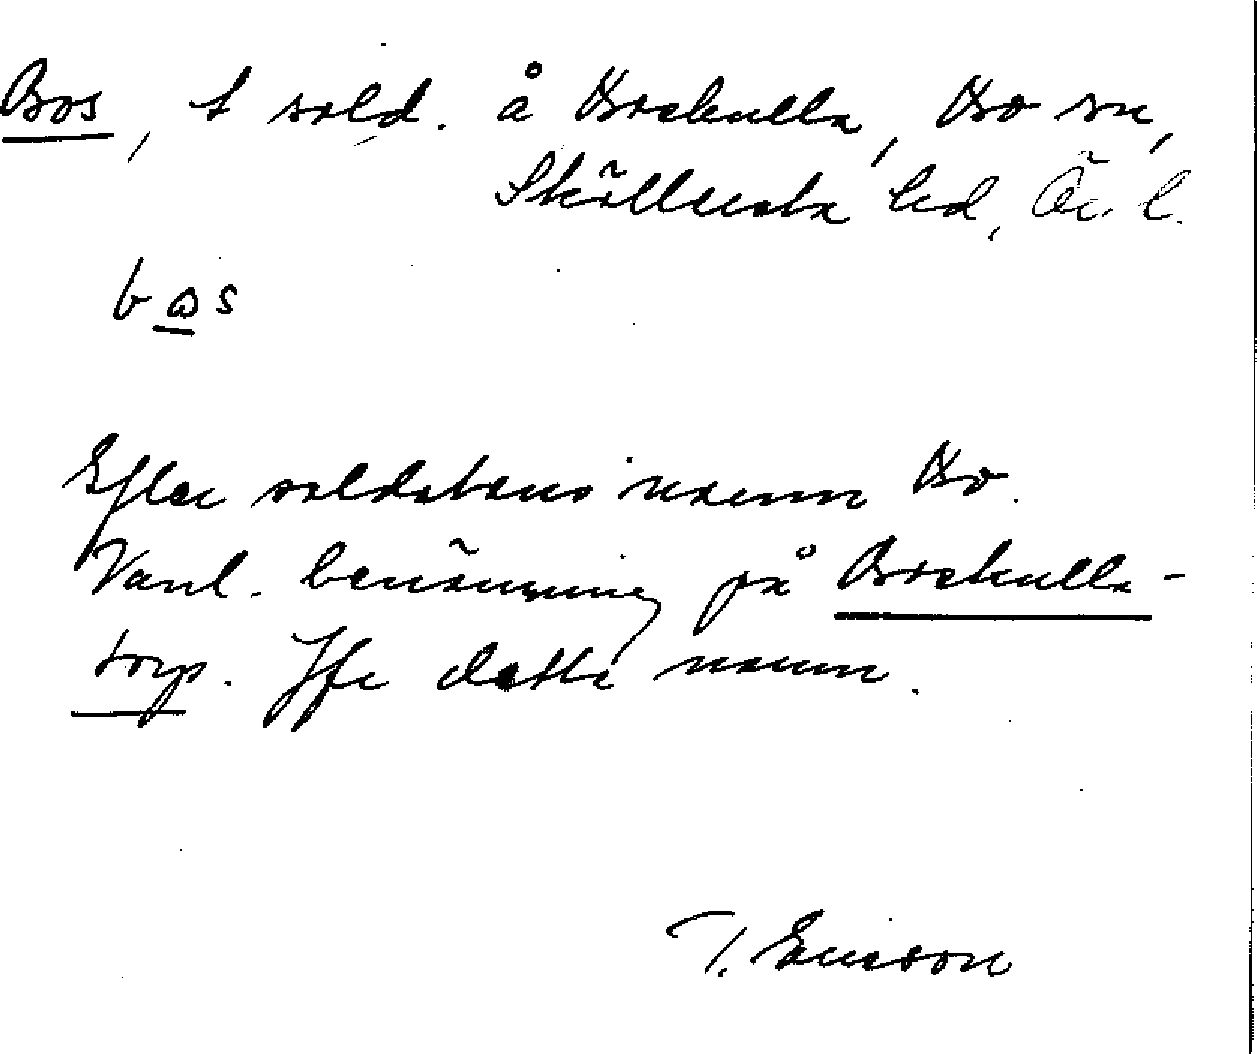 Bos, t sold. å Boskulla, Bo sn,
Sköllersta hd, Ör. l.
bos
Efter soldatens namn Bo.
Vanl. benämning på Boskulla-
torp. Jfr detta namn.
T. Ericson